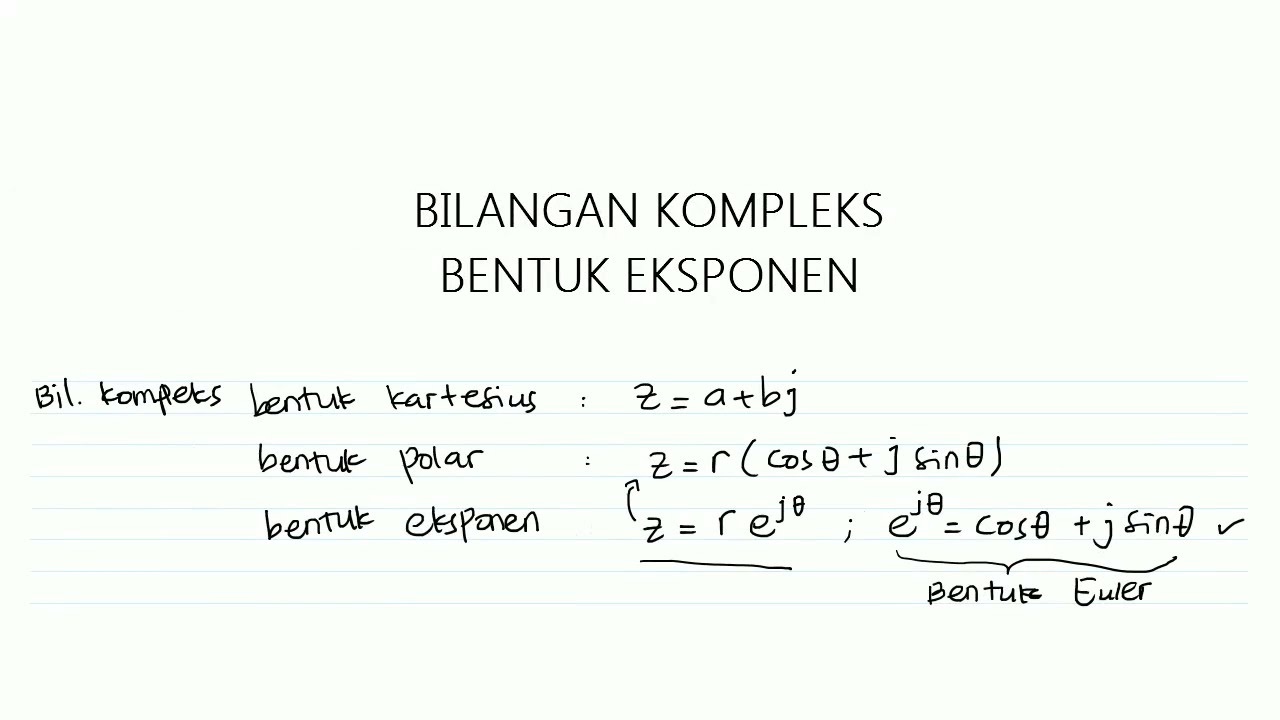 BILANGAN KOMPLEKS
BENTUK EKSPONEN
Bil. kompeks bentuk kartesius : z = a + bj
bentuk polar : z = r (cosθ + j sinθ)
bentuk eksponen z = r e^jθ ; e^jθ = cosθ + j sinθ ✓
Bentuk Euler